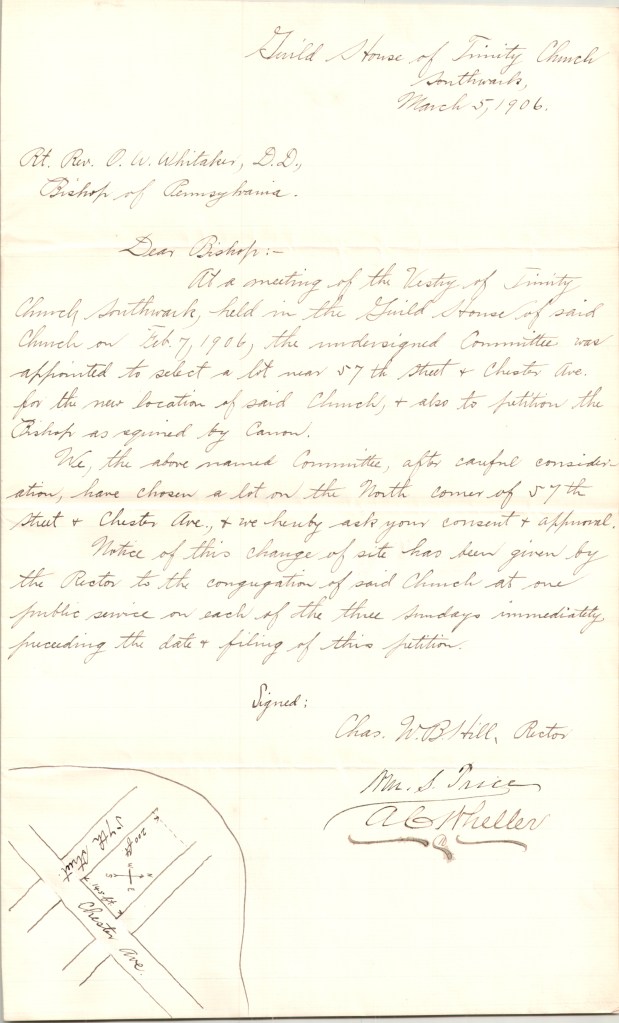 Guild House of Trinity Church
Southwark,
March 5, 1906.
Rt. Rev. O. W. Whitaker, D.D.,
Bishop of Pennsylvania.
Dear Bishop:-
At a meeting of the Vestry of Trinity
Church, Southwark, held in the Guild House of said
Church on Feb. 7, 1906, the undersigned Committee was
appointed to select a lot near 57th Street & Chester Ave.
for the new location of said Church, & also to petition the
Bishop as required by Canon.
We, the above named Committee, after careful consider-
ation, have chosen a lot on the North corner of 57th
Street & Chester Ave., & we hereby ask your consent & approval.
Notice of this change of site has been given by
the Rector to the congregation of said Church at one
public service on each of the three Sundays immediately
preceeding the date & filing of this petition.
Signed:
Chas. W. B. Hill, Rector
Wm. S. Price
A C Wheller
57th Street.
200 ft
145 ft
Chester Ave.